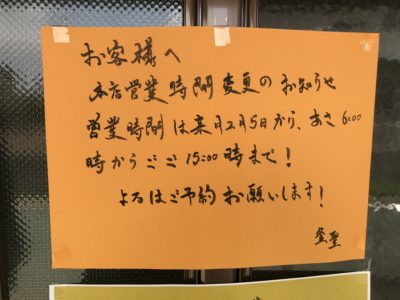 お客様へ
本店営業時間変更のお知らせ
営業時間は来月12月5日から、あさ6:00
時からごご15:00時まで！
よるはご予約お願いします！